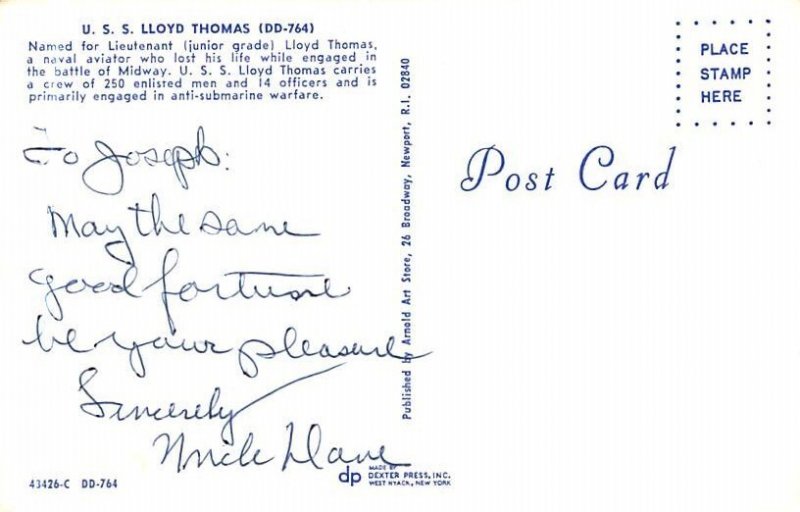 U. S. S. LLOYD THOMAS (DD-764)
Named for Lieutenant (junior grade) Lloyd Thomas,
a naval aviator who lost his life while engaged in
the battle of Midway. U. S. S. Lloyd Thomas carries
a crew of 250 enlisted men and 14 officers and is
primarily engaged in anti-submarine warfare.
To Joseph:
May the same
good fortune
be your pleasure
Sincerely
Uncle Dave
43426-C DD-764
Published by Arnold Art Store, 26 Broadway, Newport, R.I. 02840
dp
MADE BY
DEXTER PRESS, INC.
WEST NYACK, NEW YORK
Post Card
PLACE
STAMP
HERE